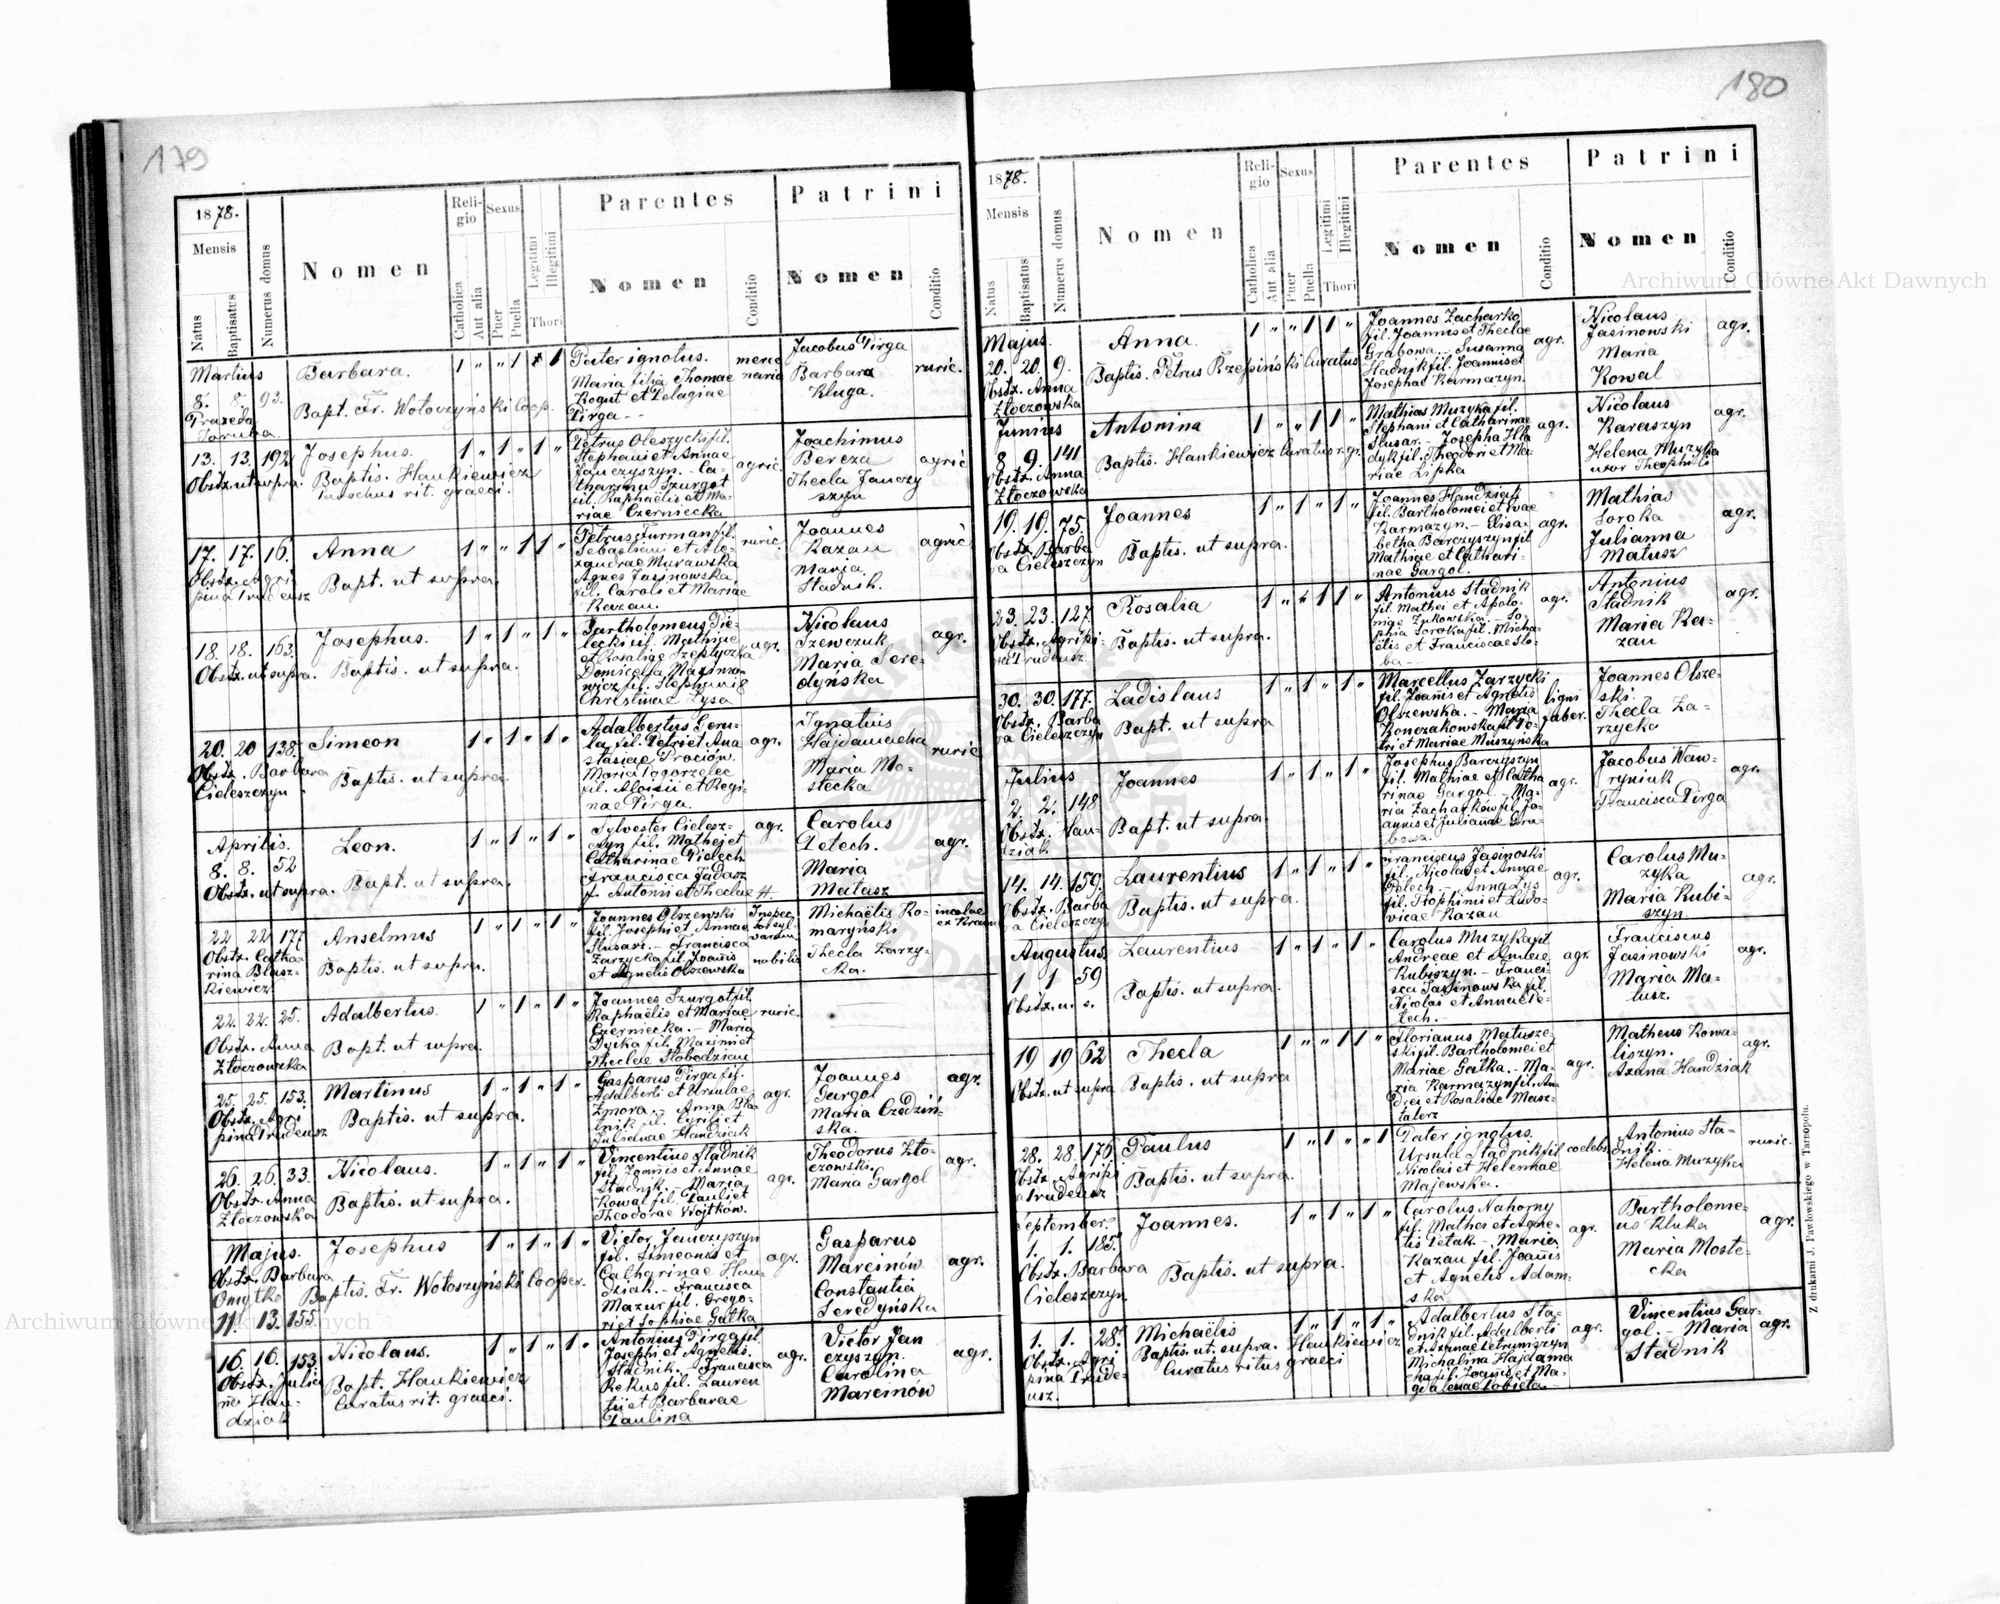 179
1878.
Mensis
Natus
Baptisatus
Numerus domus
Nomen
Religio
Catholica
Aut alia
Sexus
Puer
Puella
Legitimi
Illegitimi
Thori
Parentes
Nomen
Conditio
Patrini
Nomen
Conditio
Martius
8. 8. 93.
Barbara.
Bapt. Fr. Wołoczyński Coop.
1 " " 1 1
Pater ignotus.
Maria filia Thomae
Kogut et Pelagiae
Pirga
Jacobus Pirga
Barbara
Kluga.
ruric.
13. 13. 192
Obstz. ut supra.
Josephus.
Baptis. Hankiewicz
rit. graeci.
1 " 1 " 1 "
Petrus Oleszycki fil.
Stephani et Annae
Janczyszyn. - Ca-
tharina Szurgot
fil. Raphaëlis et Ma-
riae Czerniecka
agric.
Joachimus
Bereza
Thecla Janczy
szyn
agric.
17. 17. 16.
Obstz. Agri
pina Trudeusz
Anna
Bapt. ut supra.
1 " " 1 1 "
Petrus Furman fil.
Sebastiani et Ale-
xandrae Murawska
Agnes Jasinowska,
fil. Caroli et Mariae
Kazan.
ruric.
Joannes
Kazan
Maria
Stadnik.
agric.
18. 18. 163.
Obstz. ut supra.
Josephus.
Baptis. ut supra.
1 " 1 " 1 "
Bartholomeus Pie-
lecki fil. Mathiae
et Rosaliae Szeptycka
agr.
Nicolaus
Szewczuk
Maria Sere-
dyńska
agr.
20. 20 138.
Obstz. Barbara
Cieleszczyn
Simeon
Baptis. ut supra.
1 " 1 " 1 "
Maria Pogorzelec
fil. Aloisii et Regi-
nae Pirga.
agr.
Ignatius
Hajdamacha
Maria Mo-
stecka
ruric.
Aprilis.
8. 8. 52
Obstz. ut supra.
Leon.
Bapt. ut supra.
1 " 1 " 1 "
Sylvester Cielesz-
czyn fil. Mathei et
Catharinae Pielech
agr.
Carolus
Petech.
Maria
Matusz
agr.
22 22 177
Obstz. Catha-
rina Blasz-
kiewicz
Anselmus
Baptis. ut supra.
1 " 1 " 1 "
Joannes Olszewski
fil. Josephi et Annae
Slusarz. - Francisca
Zarzycka fil. Joanis
et Agnetis Olszewska
Inspec
tor syl-
varum
nobilis
Michaëlis Ko-
maryński
Thecla Zarzy-
cka.
22. 22. 25.
Obstz. Anna
Złoczowska
Adalbertus.
Bapt. ut supra.
1 " 1 " 1 "
Joannes Szurgot fil.
Raphaëlis et Mariae
Czerniecka. - Maria
Dycka fil. Maximi et
Theclae Słobodzian
ruric.
25. 25. 153.
Obstz. Agri
pina Trudeusz
Martinus
Baptis. ut supra.
1 " 1 " 1 "
Gasparus Pirga fil.
Adalberti et Ursulae
Zmora.
agr.
Joannes
Gargol
Maria Czedziń-
ska.
agr.
26. 26. 33.
Obstz. Anna
Złoczowska
Nicolaus.
Baptis. ut supra.
1 " 1 " 1 "
Vincentius Stadnik
fil. Joanis et Annae
Stadnik. - Maria
Kowal fil. Pauli et
Theodorae Wojtków.
agr.
Theodorus Zło-
czowski
Maria Gargol
agr.
Majus.
Obstz. Barbara
Omytko
11. 13. 155.
Josephus
Baptis. Fr. Wołoszyński Cooper.
1 " 1 " 1 "
Victor Janczyszyn
fil. Simeonis et
Catharinae Han-
dziak. - Francisca
Mazur fil. Grego-
rii et Sophiae Gałka
agr.
Gasparus
Marcinów
Constantia
Seredyńska
agr.
16. 16. 153.
Obstz. Julia
na Han-
dziak
Nicolaus.
Bapt. Hankiewicz
Curatus rit. graeci.
1 " 1 " 1 "
Antonius Pirga fil.
Josephi et Agnetis
Stadnik. Francisca
Rekus fil. Lauren
tii et Barbarae
Paulina
agr.
Victor Jan
czyszyn.
Carolina
Marcinów
agr.
180
1878.
Mensis
Natus
Baptisatus
Numerus domus
Nomen
Religio
Catholica
Aut alia
Sexus
Puer
Puella
Legitimi
Illegitimi
Thori
Parentes
Nomen
Conditio
Patrini
Nomen
Conditio
Majus.
20. 20. 9.
Obstz. Anna
Złoczowska
Anna.
Baptis. Petrus Rzepiński Curatus
1 " " 1 1 "
Joannes Zacharko
fil. Joannis et Theclae
Grabowa. - Susanna
Stadnik fil. Joannis et
Josephae Karmazyn.
agr.
Nicolaus
Jasinowski
Maria
Kowal
agr.
Junius
8. 9. 141
Obstz. Anna
Złoczowska
Antonina
Baptis. Hankiewicz Curatus r. gr.
1 " " 1 1 "
Mathias Muzyka fil.
Stephani et Catharinae
Slusar. - Josepha Hła
dyk fil. Theodori et Ma-
riae Lipka
agr.
Nicolaus
Karaszyn
Helena Muzyka
uxor Theophili
agr.
19. 19. 75.
Obstz. Barba
ra Cieleszczyn
Joannes
Baptis. ut supra.
1 " 1 " 1 "
Joannes Handziak
fil. Bartholomei et Evae
Karmazyn. - Elisa-
betha Barczyszyn fil
Mathiae et Cathari-
nae Gargol.
agr.
Mathias
Soroka
Julianna
Matusz
agr.
23. 23. 127.
Obstz. Agripi-
na Trudeusz
Rosalia
Baptis. ut supra.
1 " " 1 1 "
Antonius Stadnik
fil. Mathei et Apolo-
niae Żukowska. So-
phia Soroka fil. Micha-
ëlis et Franciscae Sło-
ba
agr.
Antonius
Stadnik
Maria Ka-
zan
agr.
30. 30. 177.
Obstz. Barba
ra Cieleszczyn
Ladislaus
Bapt. ut supra
1 " 1 " 1 "
Marcellus Zarzycki
fil. Joanis et Agnetis
Olszewska. - Maria
Konczakowska fil. Pe-
tri et Mariae Muszyńska
ligni
faber.
Joannes Olsze-
ski.
Thecla Za-
rzycka
Julius
2. 2. 148
Obstz. Han-
dziak
Joannes
Bapt. ut supra
1 " 1 " 1 "
Josephus Barczyszyn
fil. Mathiae et Catha
rinae Gargol - Ma-
ria Zacharków fil. Jo-
annis et Julianae Gra-
bowa.
agr.
Jacobus Waw-
ryniuk
Francisca Pirga
agr.
14. 14. 159.
Obstz. Barba
ra Cieleszczyn
Laurentius
Baptis. ut supra.
1 " 1 " 1 "
Franciscus Jasinoski
fil. Nicolai et Annae
Petech. - Anna Lys
fil. Stephani et Ludo-
vicae Kazan
agr.
Carolus Mu-
zyka
Maria Kubi-
szyn.
agr.
Augustus.
1 1 59
Obstz. u. s.
Laurentius
Baptis. ut supra.
1 " 1 " 1 "
Carolus Muzyka fil.
Andreae et Annae
Kubiszyn. - Franci-
sca Jasinowska fil.
Nicolai et Annae Pe-
tech.
agr.
Franciscus
Jasinowski
Maria Ma-
tusz.
agr.
19 19 62
Obstz. ut supra
Thecla
Baptis. ut supra
1 " " 1 1 "
Florianus Matusze-
ski fil. Bartholomei et
Mariae Gałka. - Ma-
ria Karmazyn fil. An-
drei et Rosaliae Musz-
talerz
agr.
Matheus Kowa-
liszyn.
Axana Handziak
agr.
28. 28. 176
Obstz. Agripi
a Trudeusz
Paulus
Baptis. ut supra.
1 " 1 " " 1
Pater ignotus.
Ursula Stadnik fil
Nicolai et Helennae
Majewska.
coelebs
Antonius Sta-
dnik.
Helena Muzyka
ruric.
September.
1. 1. 185.
Obstz. Barbara
Cieleszczyn
Joannes.
Baptis. ut supra.
1 " 1 " 1 "
Carolus Nahorny
fil. Mathei et Agne-
tis Petak. - Maria
Kazan fil. Joanis
et Agnetis Adam-
ska
agr.
Bartholome-
us Kluka
Maria Moste-
cka
agr.
1. 1. 28.
Obstz. Agri
pina Trude-
usz.
Michaëlis
Baptis. ut supra. Hankiewicz
Curatus ritus graeci
1 " 1 " 1 "
Adalbertus Sta-
dnik fil. Adalberti
et Annae Petryniszyn
Michalina Hajdama
cha fil. Joanis et Ma-
gdalenae Łobieta
agr.
Vincentius Gar-
gol. - Maria
Stadnik
agr.
Z drukarni J. Pawłowskiego w Tarnopolu.
Archiwum Główne Akt Dawnych
Archiwum Główne Akt Dawnych